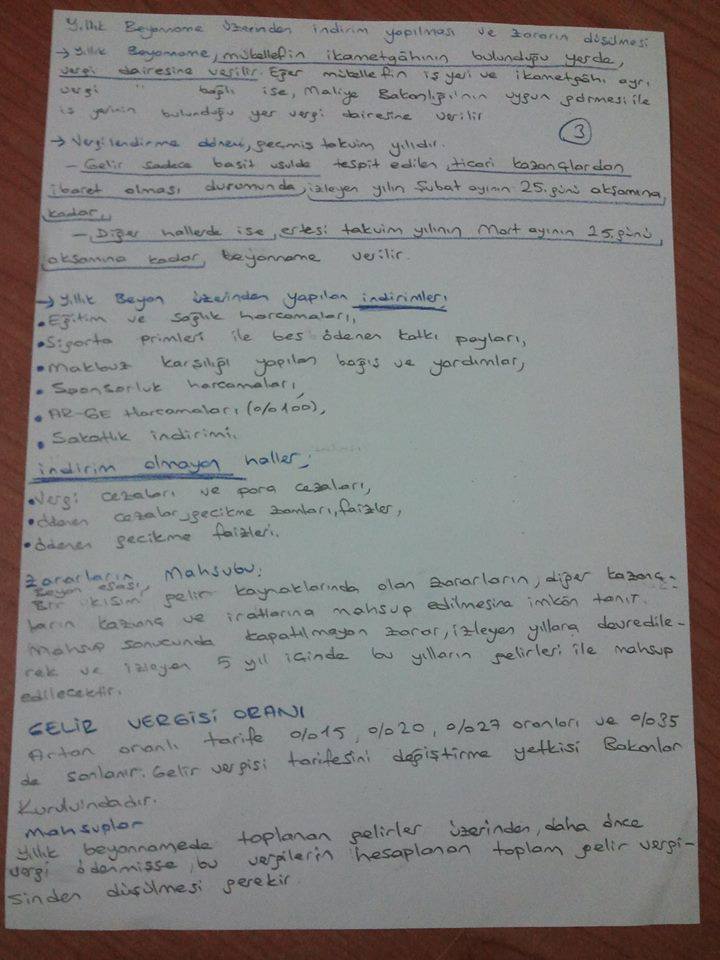 Yıllık Beyanname üzerinden indirim yapılması ve zararın düşülmesi
→ Yıllık Beyanname, mükellefin ikametgâhının bulunduğu yerde,
vergi dairesine verilir. Eğer mükellefin iş yeri ve ikametgâhı ayrı
vergi " bağlı ise, Maliye Bakanlığı'nın uygun görmesi ile
iş yerinin bulunduğu yer vergi dairesine verilir
3
→ Vergilendirme dönemi, geçmiş takvim yılıdır.
- Gelir sadece basit usulde tespit edilen, ticari kazançlardan
ibaret olması durumunda, izleyen yılın Şubat ayının 25. günü akşamına
kadar,
- Diğer hallerde ise, ertesi takvim yılının Mart ayının 25. günü
akşamına kadar, beyanname verilir.
→ Yıllık Beyan üzerinden yapılan indirimler;
• Eğitim ve sağlık harcamaları,
• Sigorta primleri ile bes ödenen katkı payları,
• Makbuz karşılığı yapılan bağış ve yardımlar,
• Sponsorluk harcamaları,
• AR-GE Harcamaları (%100),
• Sakatlık indirimi.
indirim olmayan haller;
• Vergi cezaları ve para cezaları,
• Ödenen cezalar, gecikme zamları, faizler,
• Ödenen gecikme faizleri.
Zararların Mahsubu:
Beyan esası,
Bir kısım gelir kaynaklarında olan zararların, diğer kazanç-
ların kazanç ve iratlarına mahsup edilmesine imkân tanır.
Mahsup sonucunda kapatılmayan zarar, izleyen yıllara devredile-
rek ve izleyen 5 yıl içinde bu yılların gelirleri ile mahsup
edilecektir.
GELİR VERGİSİ ORANI
Artan oranlı tarife %15, %20, %27 oranları ve %35
de sonlanır. Gelir vergisi tarifesini değiştirme yetkisi Bakanlar
Kurulu'ndadır.
Mahsuplar
Yıllık beyannamede toplanan gelirler üzerinden, daha önce
vergi ödenmişse, bu vergilerin hesaplanan toplam gelir vergi-
sinden düşülmesi gerekir.